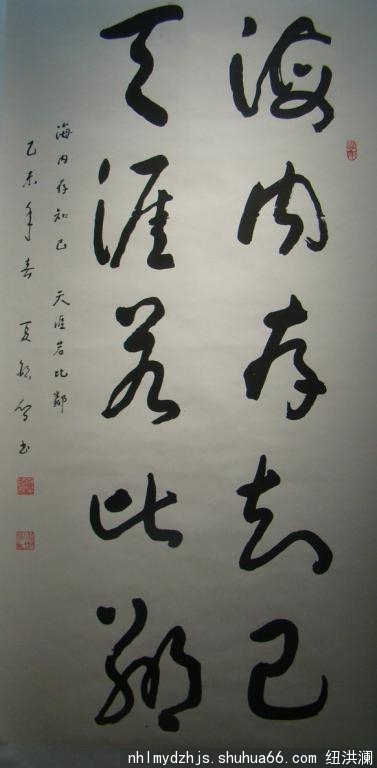 海内存知己
天涯若比邻
海内存知己 天涯若比鄰
乙未年春
書
nhlmydzhjs.shuhua66.com 纽洪澜